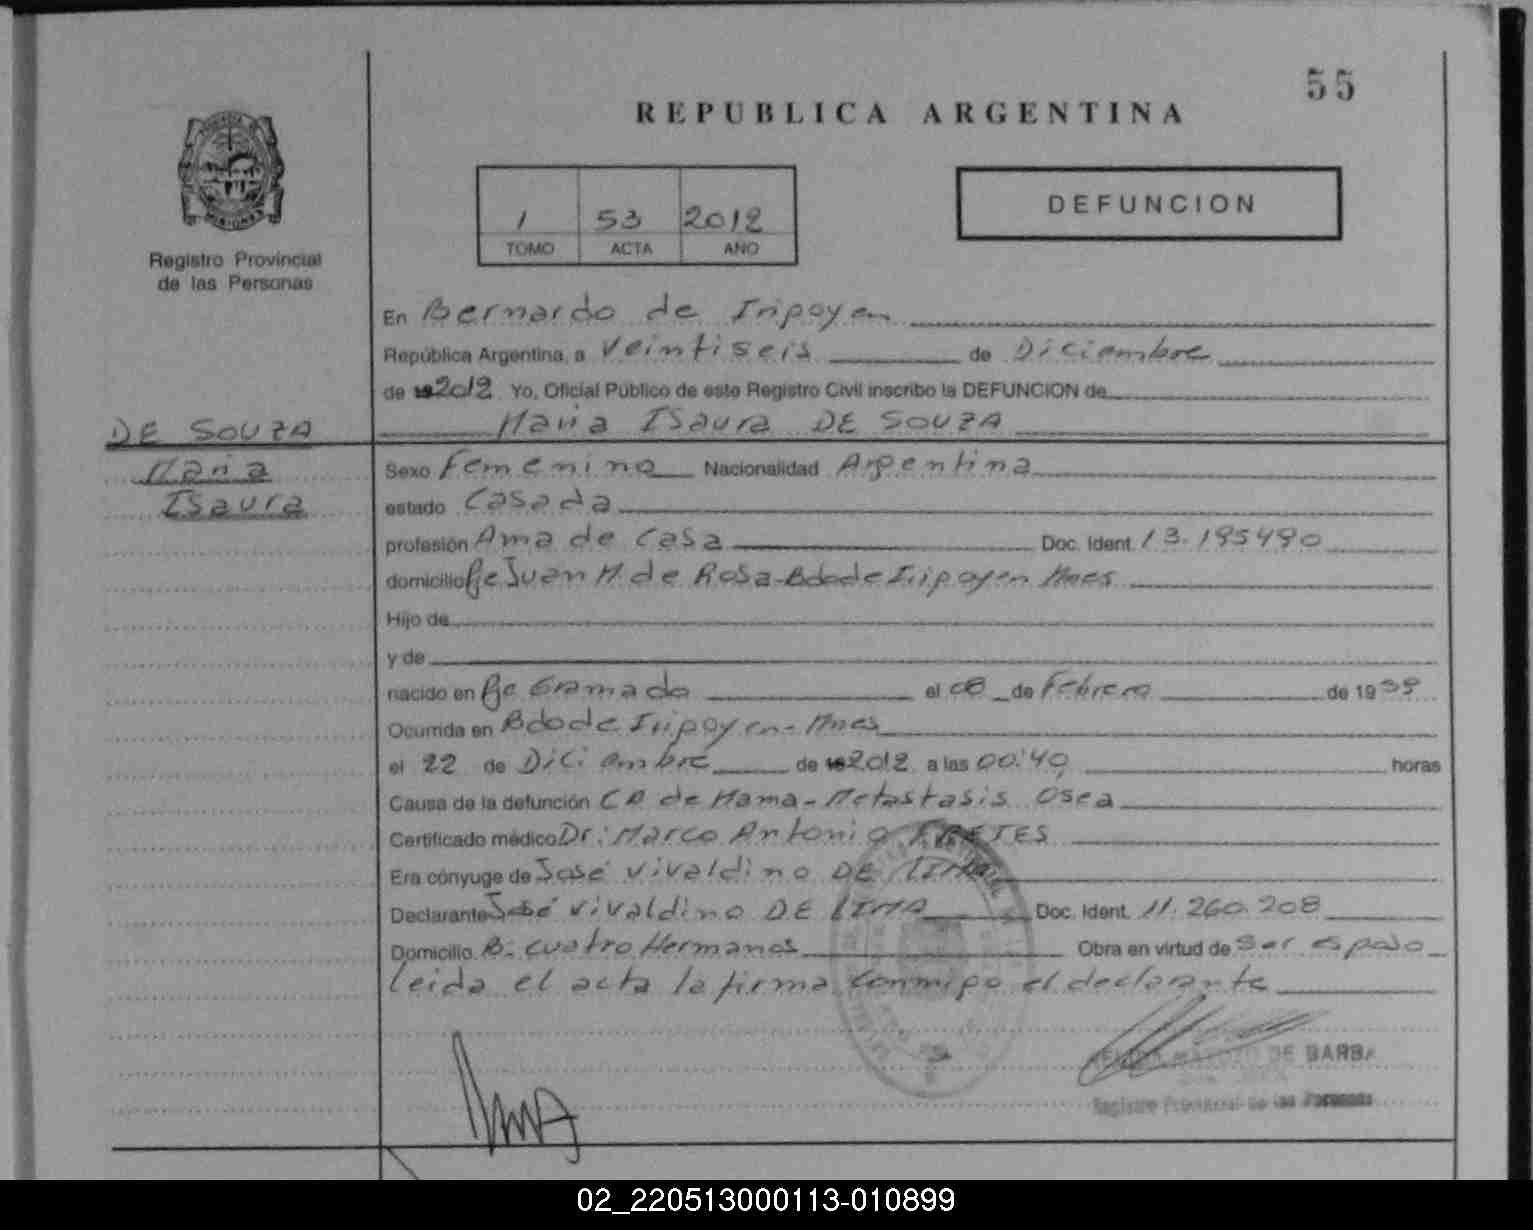 55
REPUBLICA ARGENTINA
1 53 2012
TOMO ACTA AÑO
DEFUNCION
Registro Provincial
de las Personas
En Bernardo de Irigoyen
República Argentina, a Veintiseis de Diciembre
de 2012 Yo, Oficial Público de este Registro Civil inscribo la DEFUNCION de
Maria Isaura DE SOUZA
DE SOUZA
Maria
Isaura
Sexo Femenino Nacionalidad Argentina
estado Casada
profesión Ama de Casa Doc. Ident. 13.195490
domicilio Pje Juan M. de Rosa-Bdo de Irigoyen Mnes
Hijo de
y de
nacido en Pje Gramado el 08 de Febrero de 19
Ocurrida en Bdo de Irigoyen-Mnes
el 22 de Diciembre de 2012 a las 00:40 horas
Causa de la defunción CA de Mama-Metastasis Osea
Certificado médico Dr: Marco Antonio FRETES
Era cónyuge de José Vivaldino DE LIMA
Declarante José Vivaldino DE LIMA Doc. Ident. 11.260.208
Domicilio B. Cuatro Hermanos Obra en virtud de Ser esposo
leida el acta la firma conmigo el declarante
DE BARBA
Registro Provincial de las Personas
02_220513000113-010899